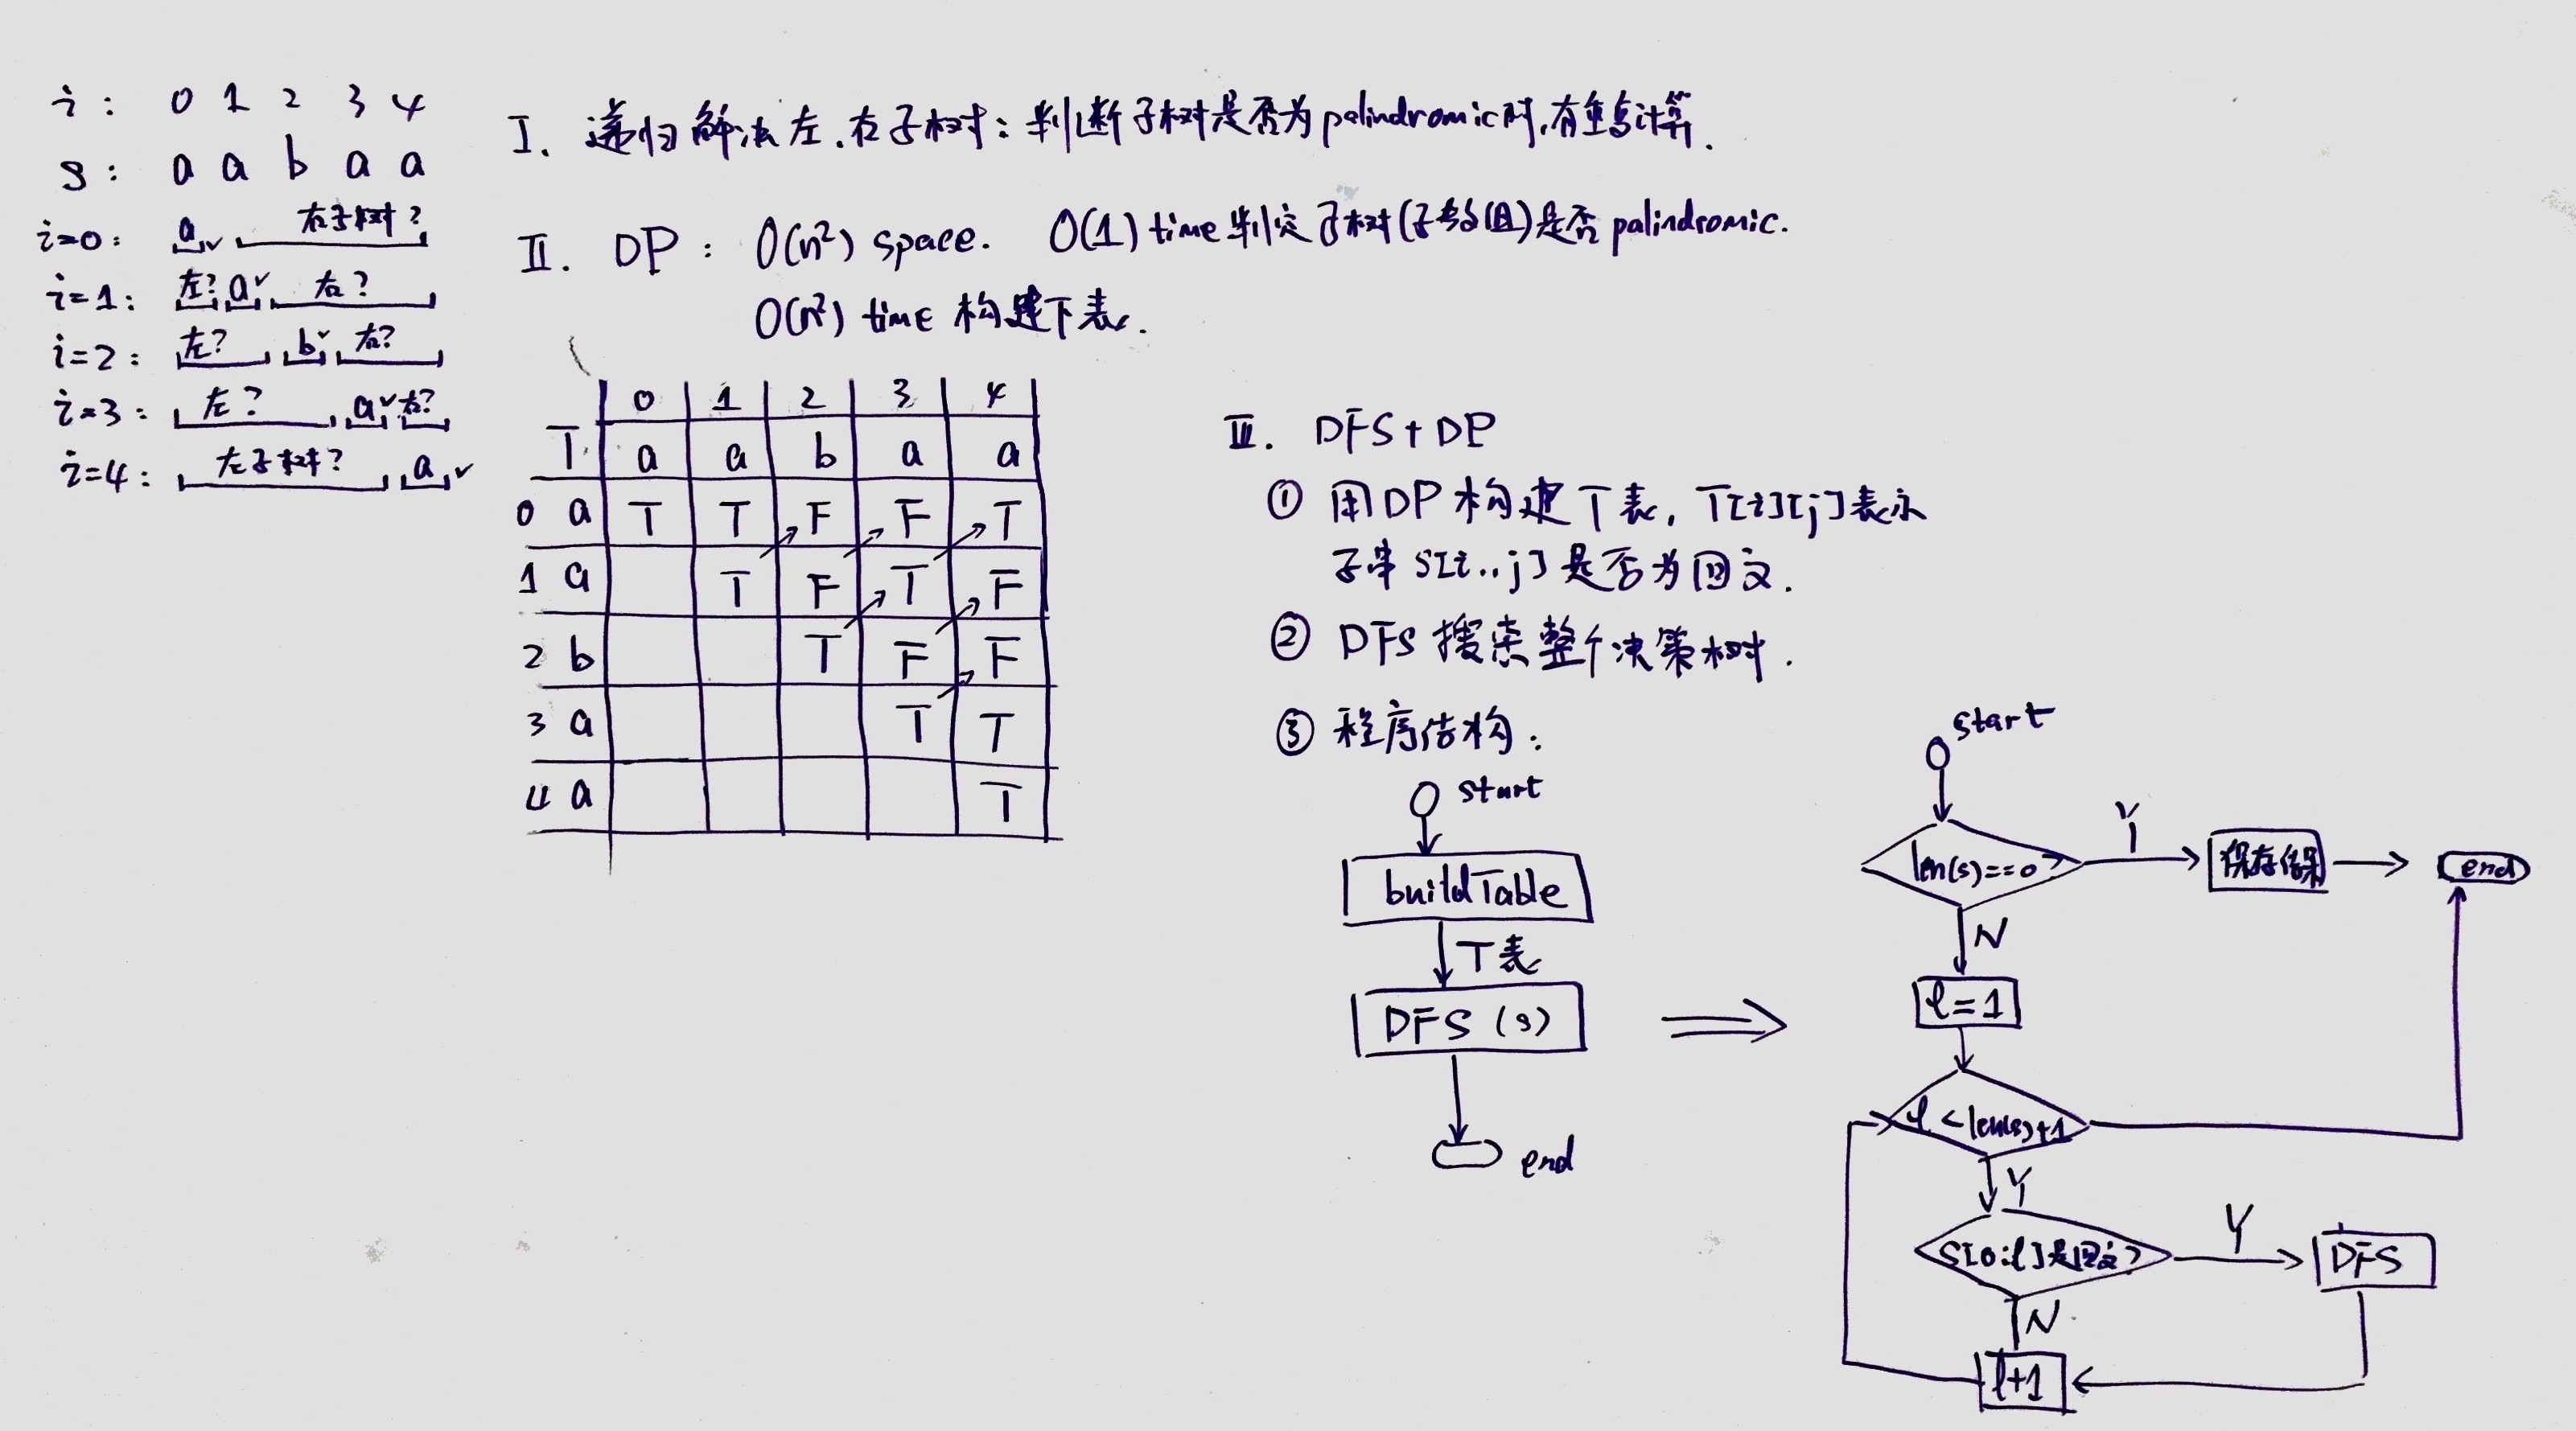 i: 0 1 2 3 4
s: a a b a a
i=0: a✓ 右子树?
i=1: 左? a✓ 右?
i=2: 左? b✓ 右?
i=3: 左? a✓ 右?
i=4: 左子树? a✓
I. 递归解决左.右子树: 判断子树是否为palindromic时,有重复计算.
II. DP: O(n²) space. O(1) time 判定子树(子数组)是否 palindromic.
O(n²) time 构建下表.
0 1 2 3 4
T a a b a a
0 a T T F F T
1 a T F T F
2 b T F F
3 a T T
4 a T
III. DFS+DP
① 用DP构建T表, T[i][j]表示
子串 S[i..j]是否为回文.
② DFS 搜索整个决策树.
③ 程序结构:
start
buildTable
T表
DFS (s)
end
start
len(s)==0?
Y
保存结果
end
N
l=1
l<len(s)+1
Y
S[0:l]是回文?
Y
DFS
N
l+1